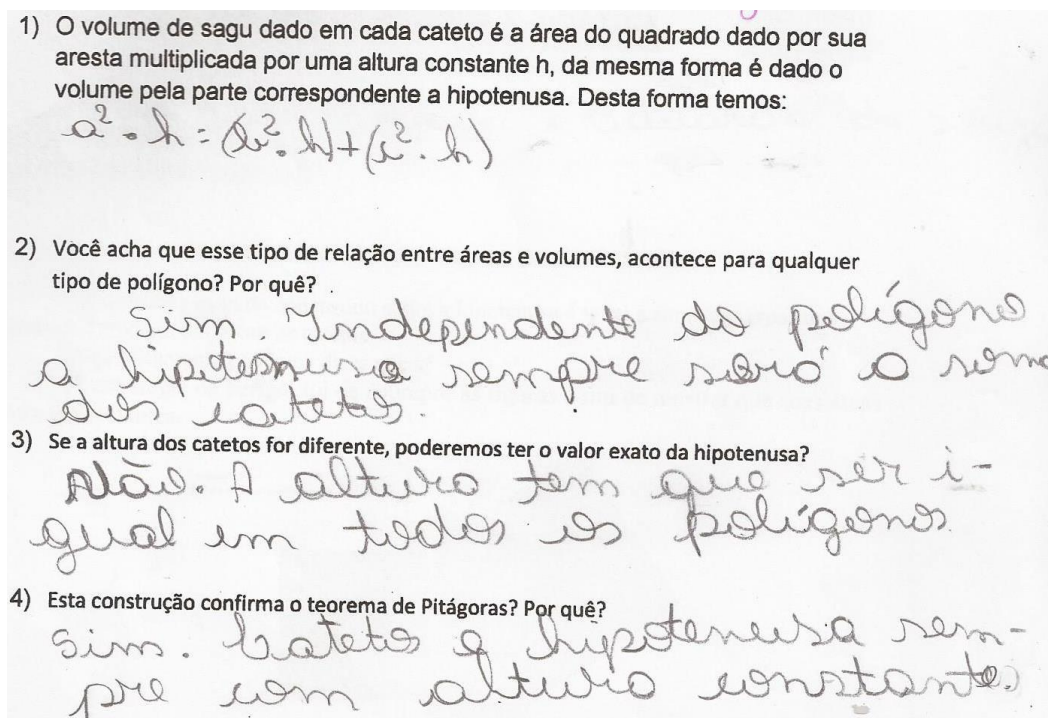 1) O volume de sagu dado em cada cateto é a área do quadrado dado por sua
aresta multiplicada por uma altura constante h, da mesma forma é dado o
volume pela parte correspondente a hipotenusa. Desta forma temos:
a² . h = (b² . h) + (c² . h)
2) Você acha que esse tipo de relação entre áreas e volumes, acontece para qualquer
tipo de polígono? Por quê? .
Sim. Independente do polígono
a hipotenusa sempre será a soma
dos catetos.
3) Se a altura dos catetos for diferente, poderemos ter o valor exato da hipotenusa?
Não. A altura tem que ser i-
gual em todos os polígonos.
4) Esta construção confirma o teorema de Pitágoras? Por quê?
Sim. Catetos e hipotenusa sem-
pre com altura constante.